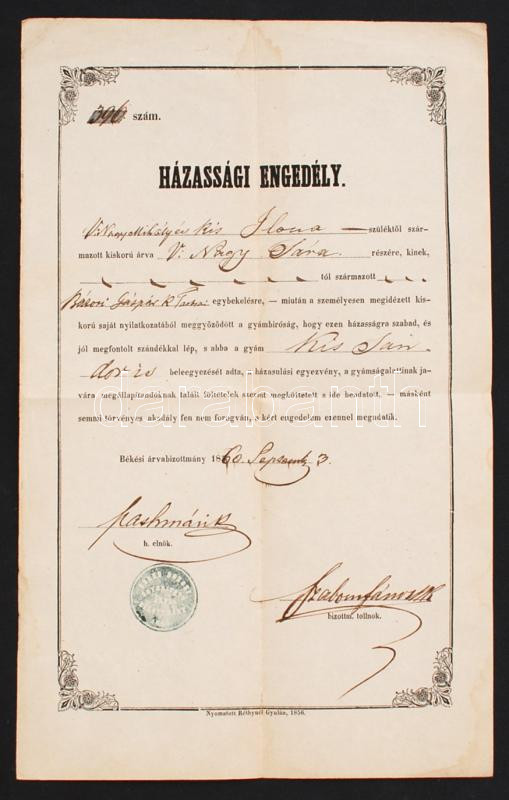 396 szám.
HÁZASSÁGI ENGEDÉLY.
V. Nagy Mihály és Kis Ilona — szüléktől szár-
mazott kiskorú árva V. Nagy Sára részére, kinek,
tól származott
Gáspár egybekelésre, — miután a személyesen megidézett kis-
korú saját nyilatkozatából meggyőződött a gyámbiróság, hogy ezen házasságra szabad, és
jól megfontolt szándékkal lép, s abba a gyám Kis Sán
dor is beleegyezését adta, a házasulási egyezvény, a gyámságalattinak ja-
vára megállapitandóknak talált föltételek szerint megköttetett s ide beadatott, — másként
semmi törvényes akadály fen nem forogván, a kért engedelem ezennel megadatik.
darabanth
Békési árvabizottmány 1860. Septemb 3.
h. elnök.
bizottm. tollnok.
Nyomatott Réthynél Gyulán, 1856.